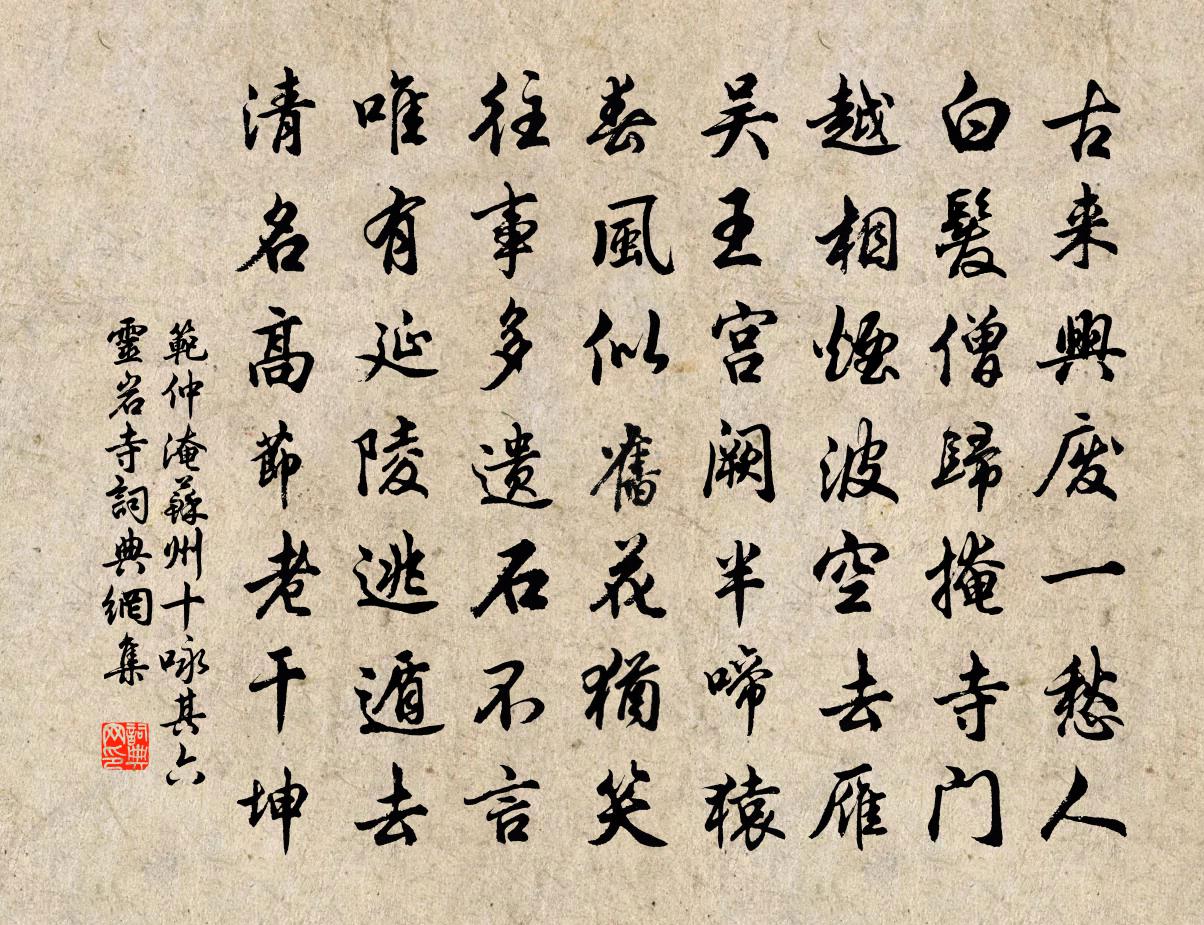 古来興废一愁人
白髮僧歸掩寺门
越相煙波空去雁
吴王宫阙半啼猿
春風似舊花猶笑
往事多遗石不言
唯有延陵逃遁去
清名高節老干坤
範仲淹蘇州十咏其六
靈岩寺詞典網集
詞典
网印